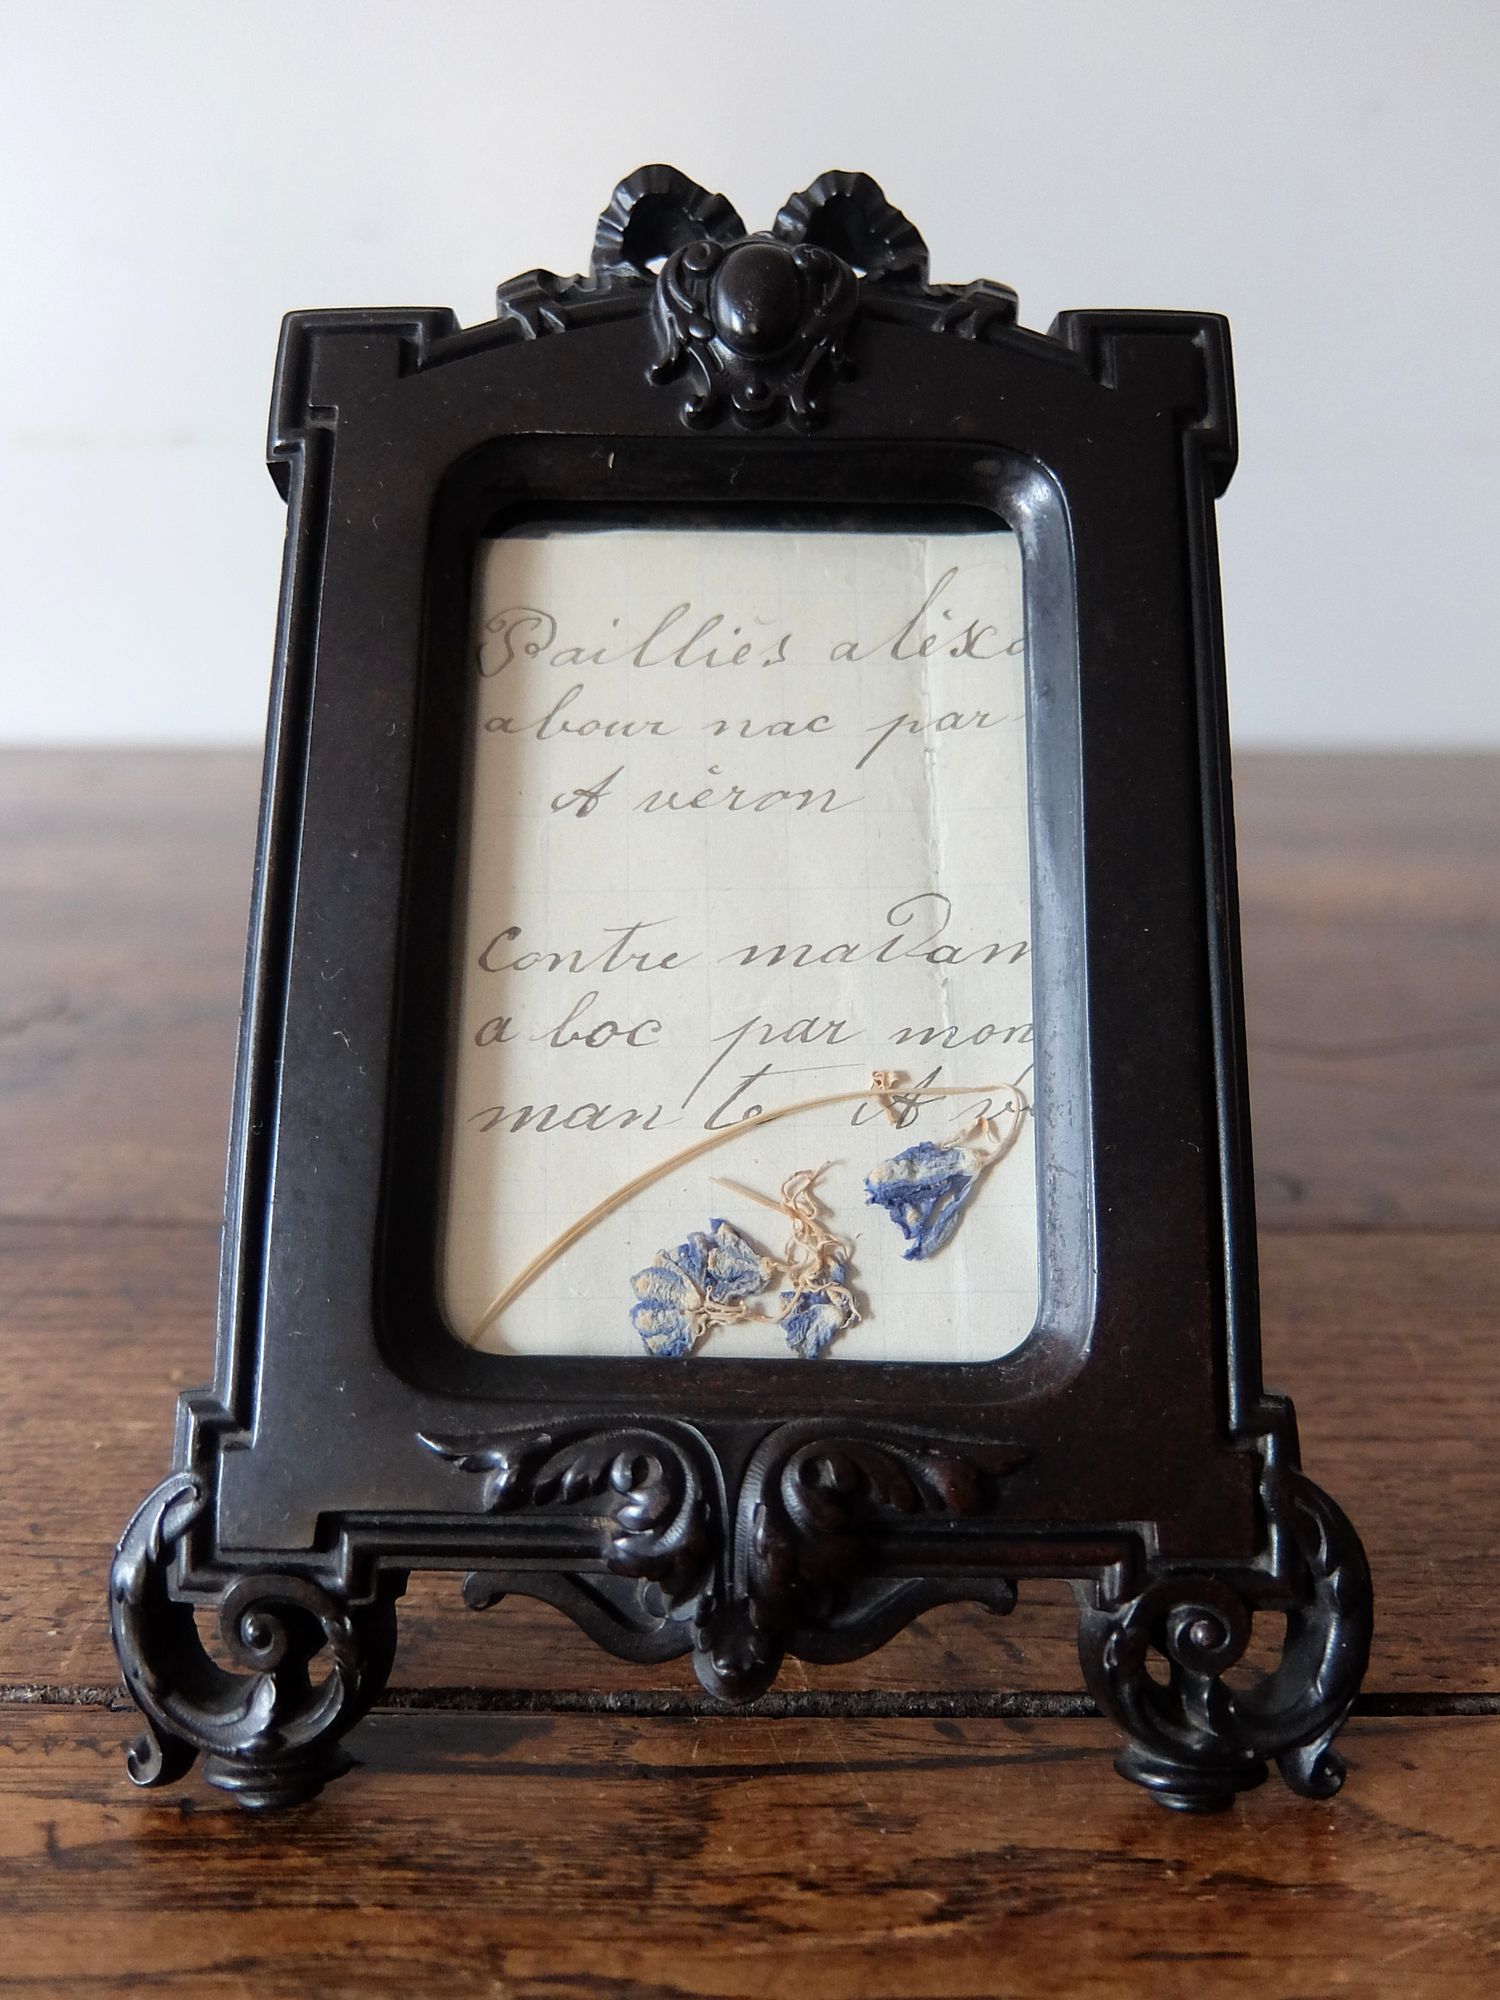 Pailliés aléxa
abour nac par
A véron
Contre maDam
a boc par mon
man te A v